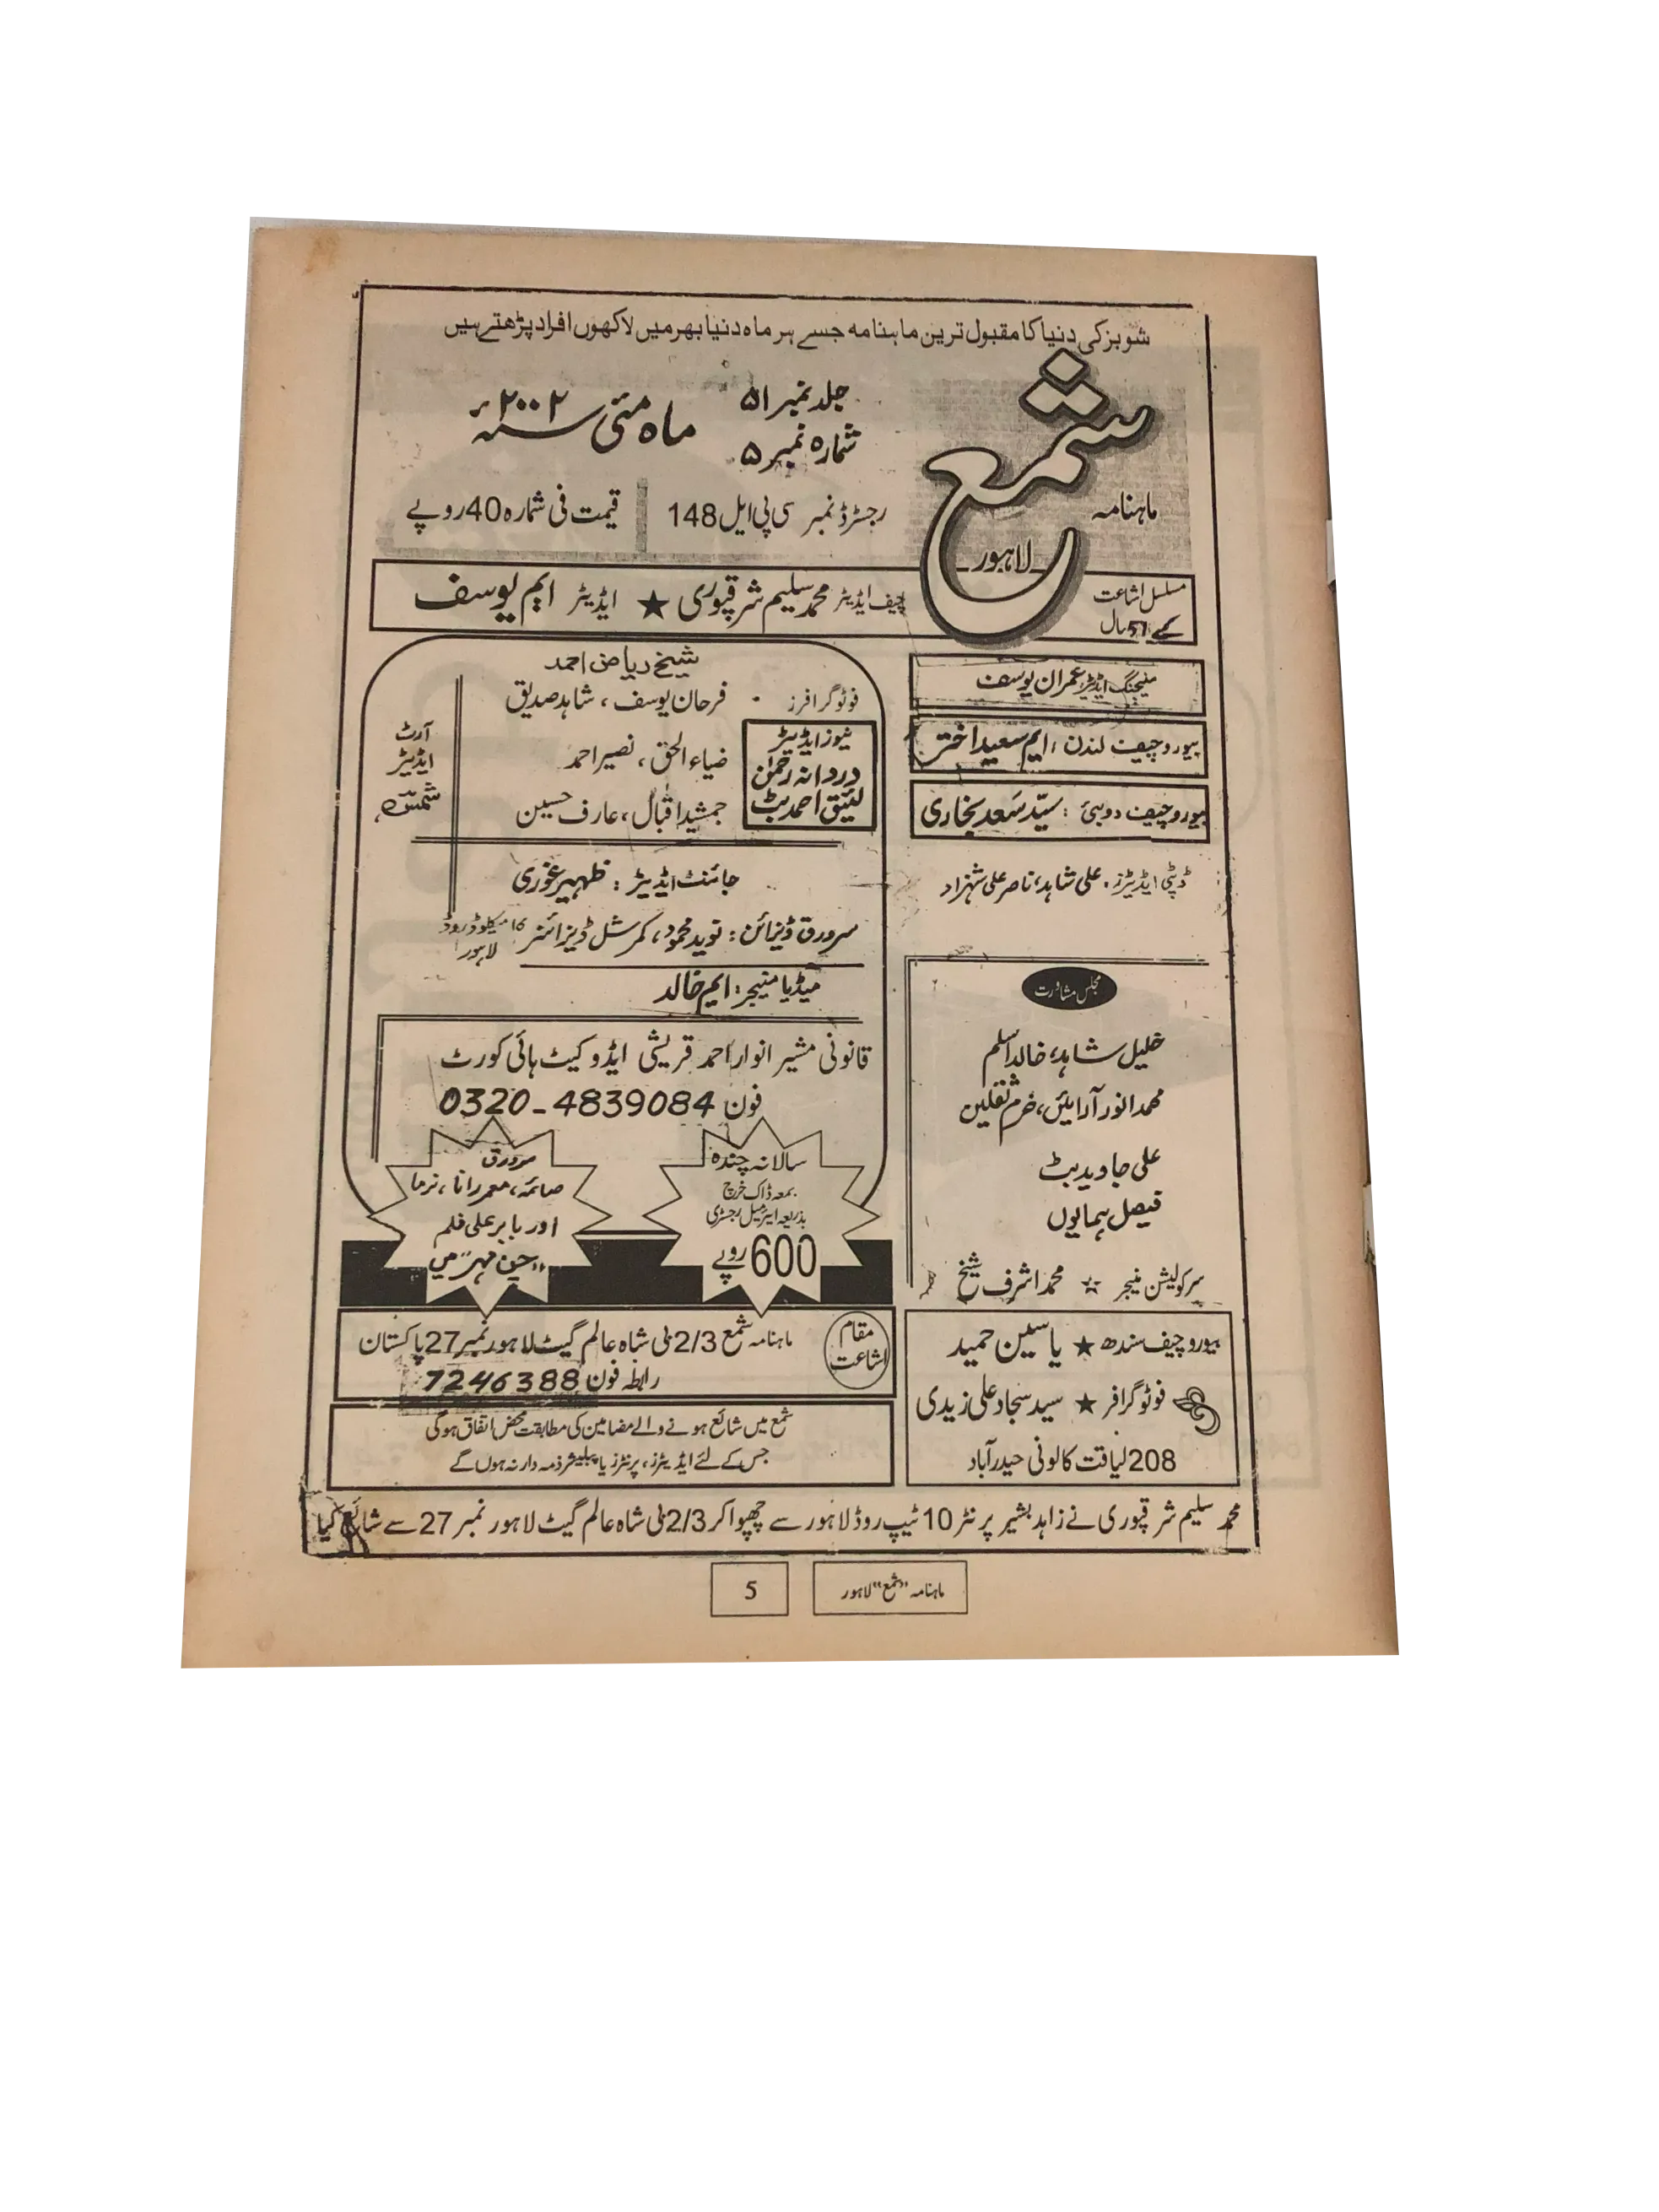 شوبز کی دنیا کا مقبول ترین ماہنامہ جسے ہر ماہ دنیا بھر میں لاکھوں افراد پڑھتے ہیں
ماہنامہ شمع لاہور
جلد نمبر ۵۱
شمارہ نمبر ۵
ماہ مئی سنہ ۲۰۰۲ء
رجسٹرڈ نمبر سی پی ایل 148
قیمت فی شمارہ 40 روپے
مسلسل اشاعت
کے 51 سال
چیف ایڈیٹر محمد سلیم شرقپوری ★ ایڈیٹر ایم یوسف
منیجنگ ایڈیٹر، عمران یوسف
بیورو چیف لندن، ایم سعید اختر
بیورو چیف دوبئی: سیّد سَعد بخاری
ڈپٹی ایڈیٹرز. علی شاہد، ناصر علی شہزاد
مجلس مشاورت
خلیل شاہد، خالد اسلم
محمد انور آرایئں، خرم ثقلین
علی جاوید بٹ
فیصل ہمایوں
سرکولیشن منیجر ☆ محمد اشرف شیخ
بیورو چیف سندھ ★ یاسین حمید
فوٹو گرافر ★ سید سجاد علی زیدی
208 لیاقت کالونی حیدر آباد
شیخ ریاض احمد
فوٹو گرافرز - فرحان یوسف، شاہد صدیق
ضیاء الحق، نصیر احمد
جمشید اقبال، عارف حسین
نیوز ایڈیٹر
دردانہ رحمٰن
لئیق احمد بٹ
آرٹ
ایڈیٹر
شمسؔ
جائنٹ ایڈیٹر: ظہیر غوری
سرورق ڈیزائن: نوید محمود، کمرشل ڈیزائنر میکلوڈ روڈ لاہور
میڈیا منیجر: ایم خالد
قانونی مشیر انوار احمد قریشی ایڈوکیٹ ہائی کورٹ
فون 0320-4839084
سالانہ چندہ
بمعہ ڈاک خرچ
بذریعہ ایئر میل رجسٹری
600 روپے
سرورق
صائمہ، معمر رانا، نرما
اور بابر علی فلم
میں
مقام اشاعت
ماہنامہ شمع 2/3 بی شاہ عالم گیٹ لاہور نمبر 27 پاکستان
رابطہ فون 7246388
شمع میں شائع ہونے والے مضامین کی مطابقت محض اتفاق ہوگی
جس کے لئے ایڈیٹرز، پرنٹرز یا پبلیشر ذمہ دار نہ ہوں گے
محمد سلیم شرقپوری نے زاہد بشیر پرنٹر 10 ٹیپ روڈ لاہور سے چھپوا کر 2/3 بی شاہ عالم گیٹ لاہور نمبر 27 سے شائع کیا
ماہنامہ "شمع" لاہور
5